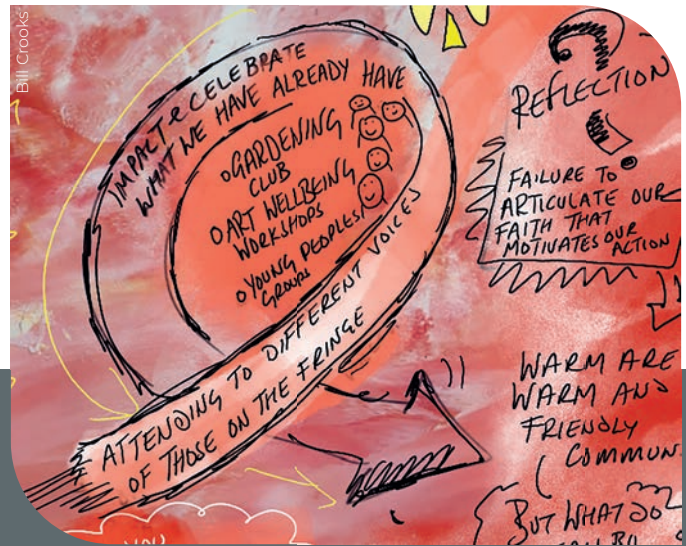 Bill Crooks
IMPACT & CELEBRATE
WHAT WE HAVE ALREADY HAVE
GARDENING
CLUB
ART WELLBEING
WORKSHOPS
YOUNG PEOPLES
GROUPS
ATTENDING TO DIFFERENT VOICES
OF THOSE ON THE FRINGE
REFLECTION
FAILURE TO
ARTICULATE OUR
FAITH THAT
MOTIVATES OUR
ACTION
WARM ARE
WARM AND
FRIENDLY
COMMUN
BUT WHAT DO
YOU